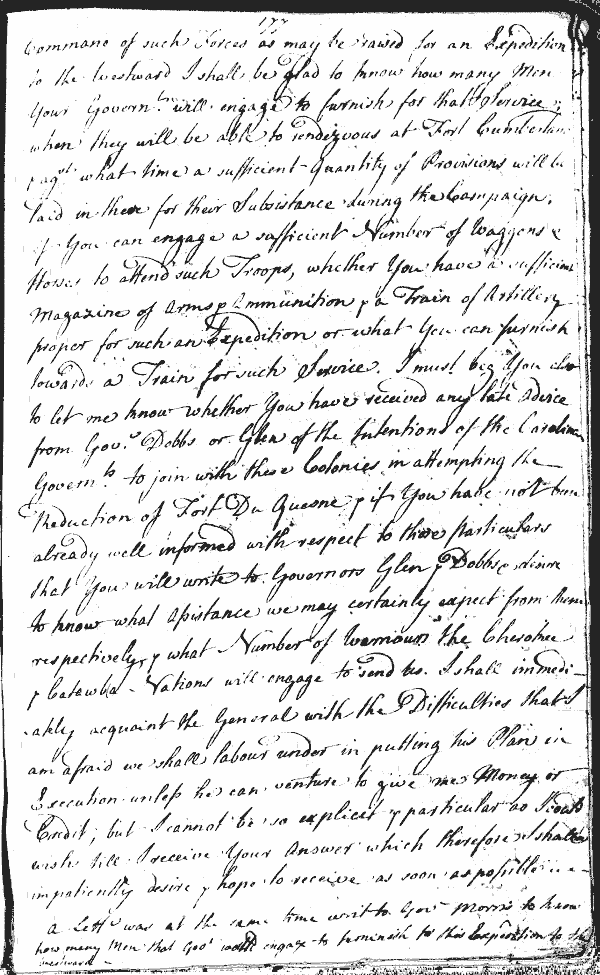 177
Command of such Forces as may be raised for an Expedition
to the Westward I shall be glad to know how many Men
Your Governt. will engage to furnish for that Service;
when they will be able to rendezvous at Fort Cumberland
& agst. what time a sufficient Quantity of Provisions will be
laid in there for their Subsistance during the Campaign,
if You can engage a sufficient Number of Waggons &
Horses to attend such Troops, whether You have a sufficient
Magazine of Arms & Ammunition & a Train of Artillery
proper for such an Expedition or what You can furnish
towards a Train for such Service. I must beg You also
to let me know whether You have received any late Advice
from Govrs. Dobbs or Glen of the Intentions of the Carolina
Governts. to join with these Colonies in attempting the
Reduction of Fort Du Quesne & if You have not been
already well informed with respect to those Particulars
that You will write to Governors Glen & Dobbs & desire
to know what Assistance we may certainly expect from them
respectively, & what Number of Warriours the Cherokee
& Catawba Nations will engage to send Us. I shall immedi-
ately acquaint the General with the Difficulties that I
am afraid we shall labour under in putting his Plan in
Execution unless he can venture to give me Money or
Credit; but I cannot be so explicit & particular as I could
wish till I receive Your Answer which therefore I shall
impatiently desire & hope to receive as soon as possible
a Lettr. was at the same time writ to Govr. Morris to know
how many Men that Govt. would engage to furnish to this Expedition to the
Westward